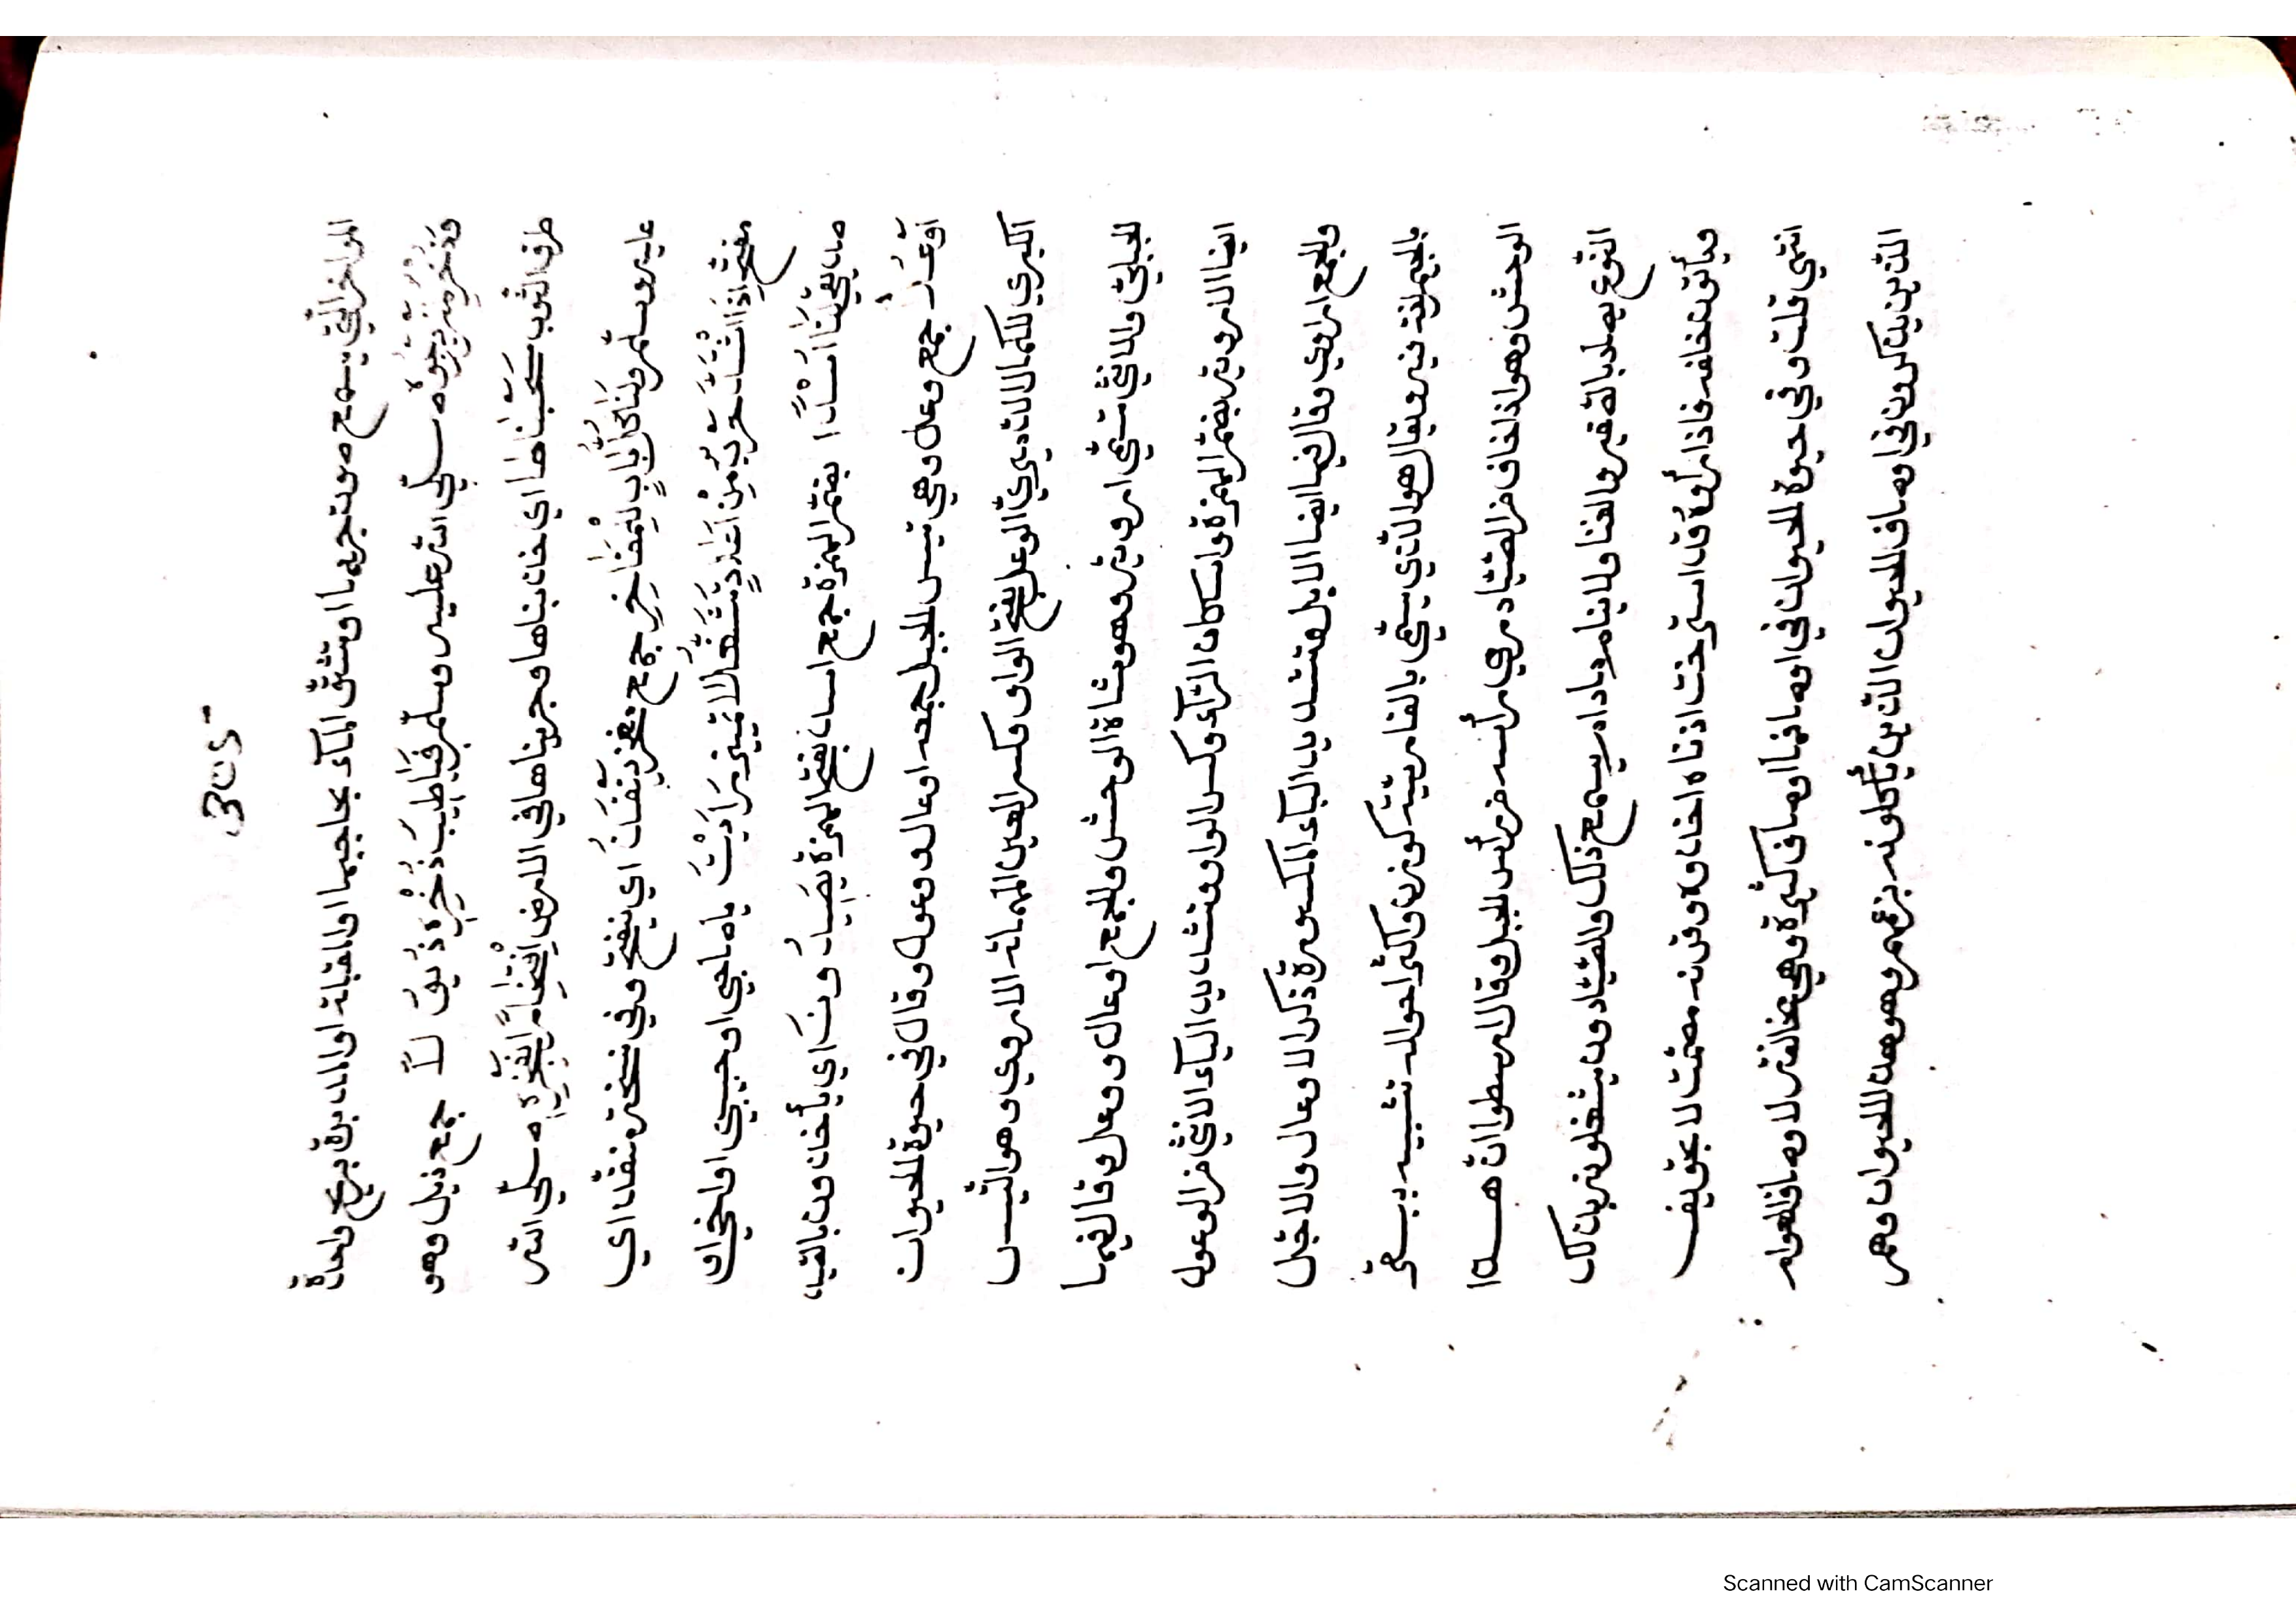 المواخر التي يسمع صوت جريها او تشق الماء بجاجيها او المقبلة او المدبرة بريح واحدة
صلي الله عليه وسلم فيا طيب ذخره ذيول لا جمع ذيل وهو
طرف الثوب سحبناها اي خاننا بناها وجريناها في الارض افتخارا بفخره صلي الله
عليه وسلم وكل باب للمفاخر جمع مفخر نفتح اي يفتح وفي نسخة منفتح اي
مفتح اذا اشتد حرب من اعاد تشغلا تمييز رايت يا صاحبي او حبيبي او اخي او
صديقي اسدا بضم الهمزة جمع اسد بفتح الهمزة يصيدون اي ياخذون بالصيد
اوعل جمع وعل وهي تيس الجبل جمعه اوعال ووعول وقال في حيوة الحيوان
الكبري للكمال الدميري الوعل بفتح الواو وكسر العين المهملة الاروي وهو التيس
الجبلي والانثي تسمي اروية وهو شاة الوحش والجمع اوعال ووعل وقال فيها
ايضا الاروية بضم الهمزة واسكان الراء وكسر الواو وتشديد الياء الانثي من الوعول
والجمع اروي وقال فيها ايضا الايل بتشديد الياء المكسورة ذكر الاوعال والاجل
بالجيم لغة فيه ويقال هو الذي يسمي بالفارسية كوزن واكثر احواله شبيه ببقر
الوحش وهو اذا خاف من الصياد رمي راسه من راس الجبل وقال ارسطو ان هذا
النوع يصاد بالصفير والغنا ولا ينام ما دام يسمع ذلك والصيادون يشغلونه بذلك
ويأتون خلفه فاذا رأوه قد استرخت اذناه اخذوه وقرنه مصمت لا تجويف
انتهي قلت وفي حيوة الحيوان في اوصافها اوصاف كثيرة وهي مخالفة لاوصاف العوام
الذين يذكرونها في اوصاف الحيوان الذين يأكلونه بزعمهم وهو هذا الحيوان وهم